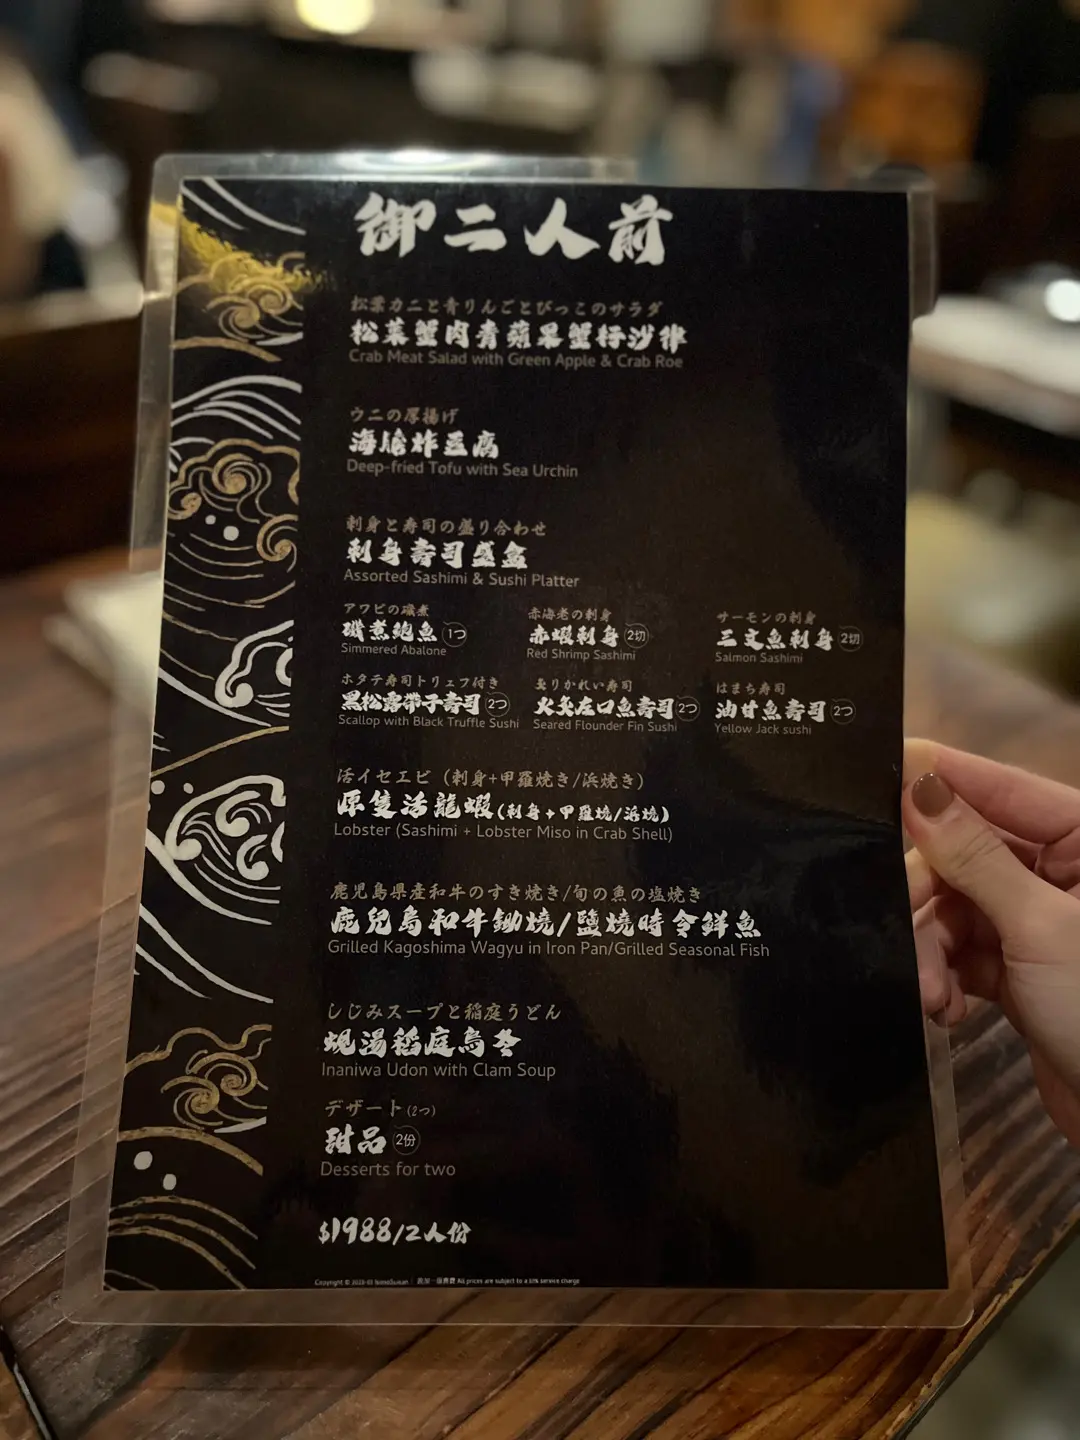 御二人前
松葉カニと青りんごとびっこのサラダ
松葉蟹肉青蘋果蟹籽沙律
Crab Meat Salad with Green Apple & Crab Roe
ウニの厚揚げ
海膽炸豆腐
Deep-fried Tofu with Sea Urchin
刺身と寿司の盛り合わせ
刺身壽司盛盒
Assorted Sashimi & Sushi Platter
アワビの磯煮
磯煮鮑魚 1つ
Simmered Abalone
赤海老の刺身
赤蝦刺身 2切
Red Shrimp Sashimi
サーモンの刺身
三文魚刺身 2切
Salmon Sashimi
ホタテ寿司トリュフ付き
黑松露帶子壽司 2つ
Scallop with Black Truffle Sushi
炙りかれい寿司
火炙左口魚壽司 2つ
Seared Flounder Fin Sushi
はまち寿司
油甘魚壽司 2つ
Yellow Jack sushi
活イセエビ (刺身+甲羅焼き/浜焼き)
原隻活龍蝦(刺身+甲羅燒/浜燒)
Lobster (Sashimi + Lobster Miso in Crab Shell)
鹿児島県産和牛のすき焼き/旬の魚の塩焼き
鹿兒島和牛鋤燒/鹽燒時令鮮魚
Grilled Kagoshima Wagyu in Iron Pan/Grilled Seasonal Fish
しじみスープと稲庭うどん
蜆湯稻庭烏冬
Inaniwa Udon with Clam Soup
デザート(2つ)
甜品 2份
Desserts for two
$1988/2人份
Copyright © All prices are subject to a 10% service charge